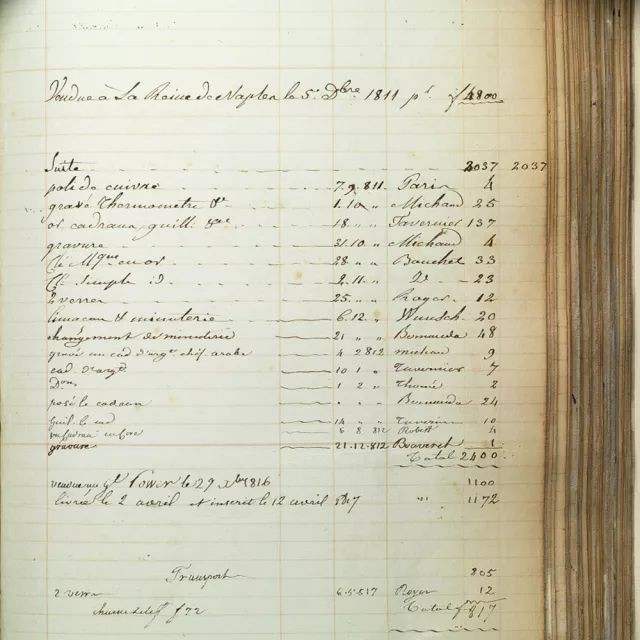 Vendue à La Reine de Naples le 5 Dbre 1811 pr f 4800
Suite 2037 2037
poli de cuivre 7.9.811 Paris 4
gravé thermomètre & 1.10 " Michaud 25
or cadraux, guill. 18 " " Tavernier 137
gravure 31.10 " Michaud 4
Clé Mque en or 28 " " Bouchet 33
Cl. Simple id. 2.11 " D. 23
2 verres 25 " " Roger 12
limacon & minuterie 6.12 " Wunsch 20
changement de minuterie 21 " 48
gravé un cad d'argt chif arabe 4 2 812 michau 9
cad. d'argt 10 1 " Tavernier 7
Dom 1 2 " Thomé 2
posé le cadran " " " 24
Guil. le 14 " Tavernier 10
6 8 812 Robert 4
gravure 21.12.812 1
Total 2400
Gl Tower le 29 Xbre 1816 1100
livrée le 2 avril et inscrit le 12 avril 1817 " 1172
Transport 805
2 verre 6.5.817 Royer 12
f 72 Total f 817